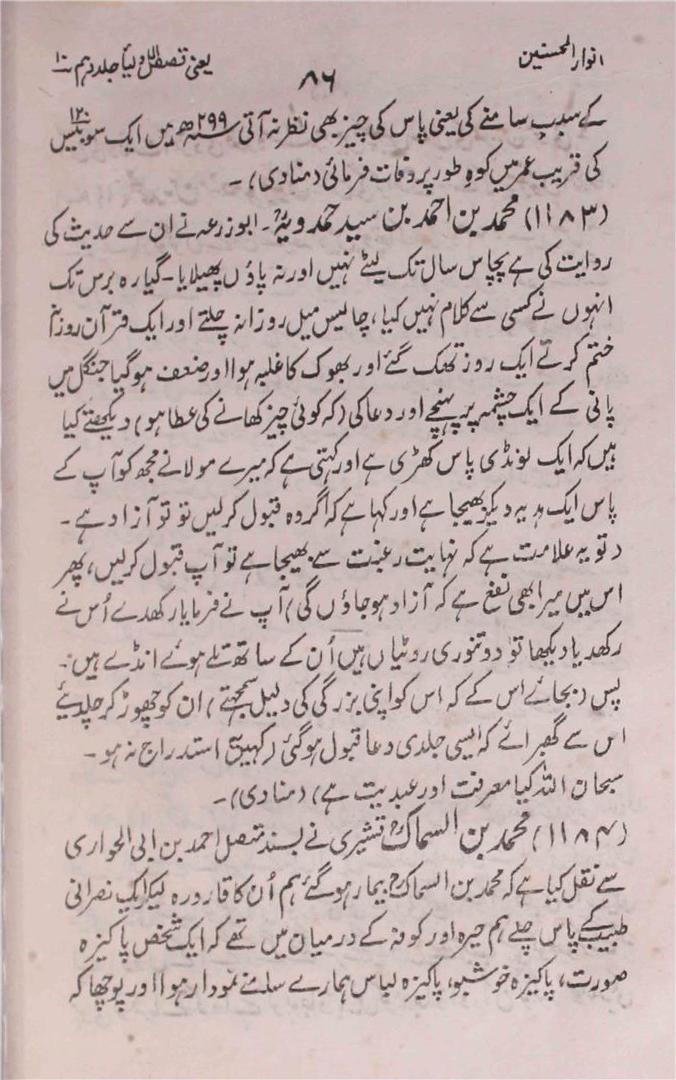 انوار المحسنین
یعنی قصص الاولیا جلد دہم ۱۰
۸۶
کے سبب سامنے کی یعنی پاس کی چیز بھی نظر نہ آتی ۲۹۹ھ میں ایک سو بیس ۱۲۰
کی قریب عمر میں کوہِ طور پر وفات فرمائی (منادی)۔
(۱۱۸۳) محمد بن احمد بن سید حمدویہؒ۔ ابو زرعہ نے ان سے حدیث کی
روایت کی ہے پچاس سال تک لیٹے نہیں اور نہ پاؤں پھیلایا۔ گیارہ برس تک
انہوں نے کسی سے کلام نہیں کیا، چالیس میل روزانہ چلتے اور ایک قرآن روزانہ
ختم کرتے ایک روز تھک گئے اور بھوک کا غلبہ ہوا اور ضعف ہوگیا جنگل میں
پانی کے ایک چشمہ پر پہنچے اور دعا کی (کہ کوئی چیز کھانے کی عطا ہو) دیکھتے کیا
ہیں کہ ایک لونڈی پاس کھڑی ہے اور کہتی ہے کہ میرے مولا نے مجھ کو آپ کے
پاس ایک ہدیہ دیکر بھیجا ہے اور کہا ہے کہ اگر وہ قبول کرلیں تو تو آزاد ہے۔
(تو یہ علامت ہے کہ نہایت رغبت سے بھیجا ہے تو آپ قبول کرلیں، پھر
اس میں میرا بھی نفع ہے کہ آزاد ہوجاؤں گی) آپ نے فرمایا رکھدے اُس نے
رکھدیا دیکھا تو دو تنوری روٹیاں ہیں اُن کے ساتھ تلے ہوئے انڈے ہیں۔
پس (بجائے اس کے کہ اس کو اپنی بزرگی کی دلیل سمجھتے) ان کو چھوڑ کر چلدیئے
اس سے گھبرائے کہ ایسی جلدی دعا قبول ہوگئی (کہیں استدراج نہ ہو۔
سبحان اللہ کیا معرفت اور عبدیت ہے) (منادی)۔
(۱۱۸۴) محمد بن السماکؒ قشیری نے بسند متصل احمد بن ابی الحواری
سے نقل کیا ہے کہ محمد بن السماکؒ بیمار ہوگئے ہم اُن کا قارورہ لیکر ایک نصرانی
طبیب کے پاس چلے ہم حیرہ اور کوفہ کے درمیان میں تھے کہ ایک شخص پاکیزہ
صورت، پاکیزہ خوشبو، پاکیزہ لباس ہمارے سامنے نمودار ہوا اور پوچھا کہ